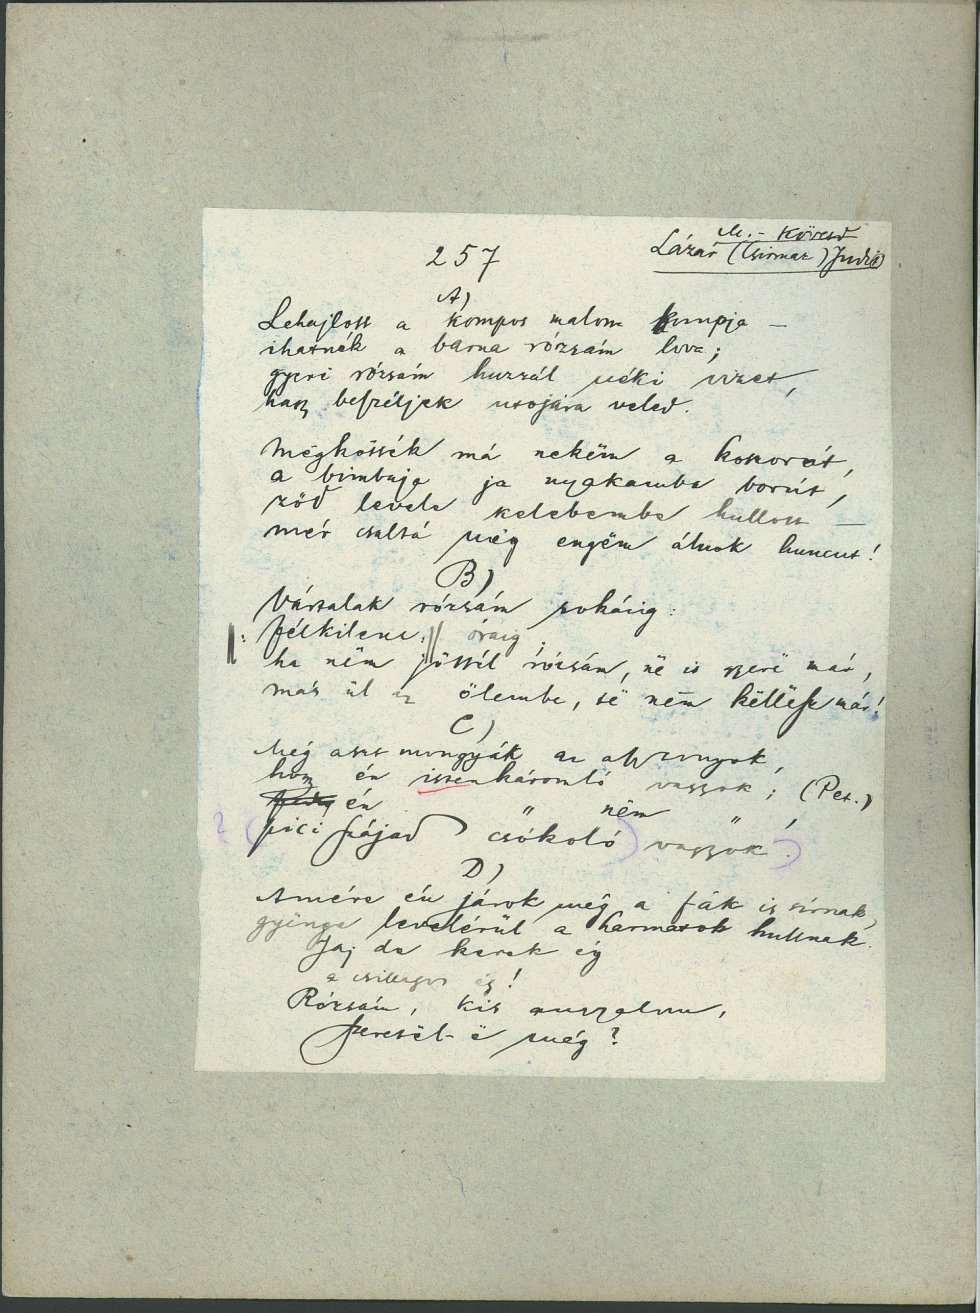 257
M.-Kövesd
Lázár (Csirmaz) Judit
A)
Lehajlott a kompos malom kompja –
ihatnék a barna rózsám lova;
gyeri rózsám huzzál néki vizet,
hagy beszéljek utojára veled.
Mëgkötték má nekëm a koszorút,
a bimbaja ja nyakamba borút,
ződ levele kelebembe hullott –
mér csaltá mëg engëm álnok huncut!
B)
Vártalak rózsám sokáig:
||: félkilenc :|| óráig.
ha nëm jöttél rózsám, në is gyere már,
más ül az ölembe, të nëm këllesz már!
C)
Még aszt mongyák az asszonyok,
hogy én istenkáromló vagyok; (Pet.)
én " nëm " ,
? ( pici szájad csókoló ) vagyok. )
D)
Amére én járok még a fák is sírnak,
gyönge levelérül a harmatok hullnak.
Jaj de kerek ég
a csillagos ég!
Rózsám, kis angyalom,
szeretël-ë még?